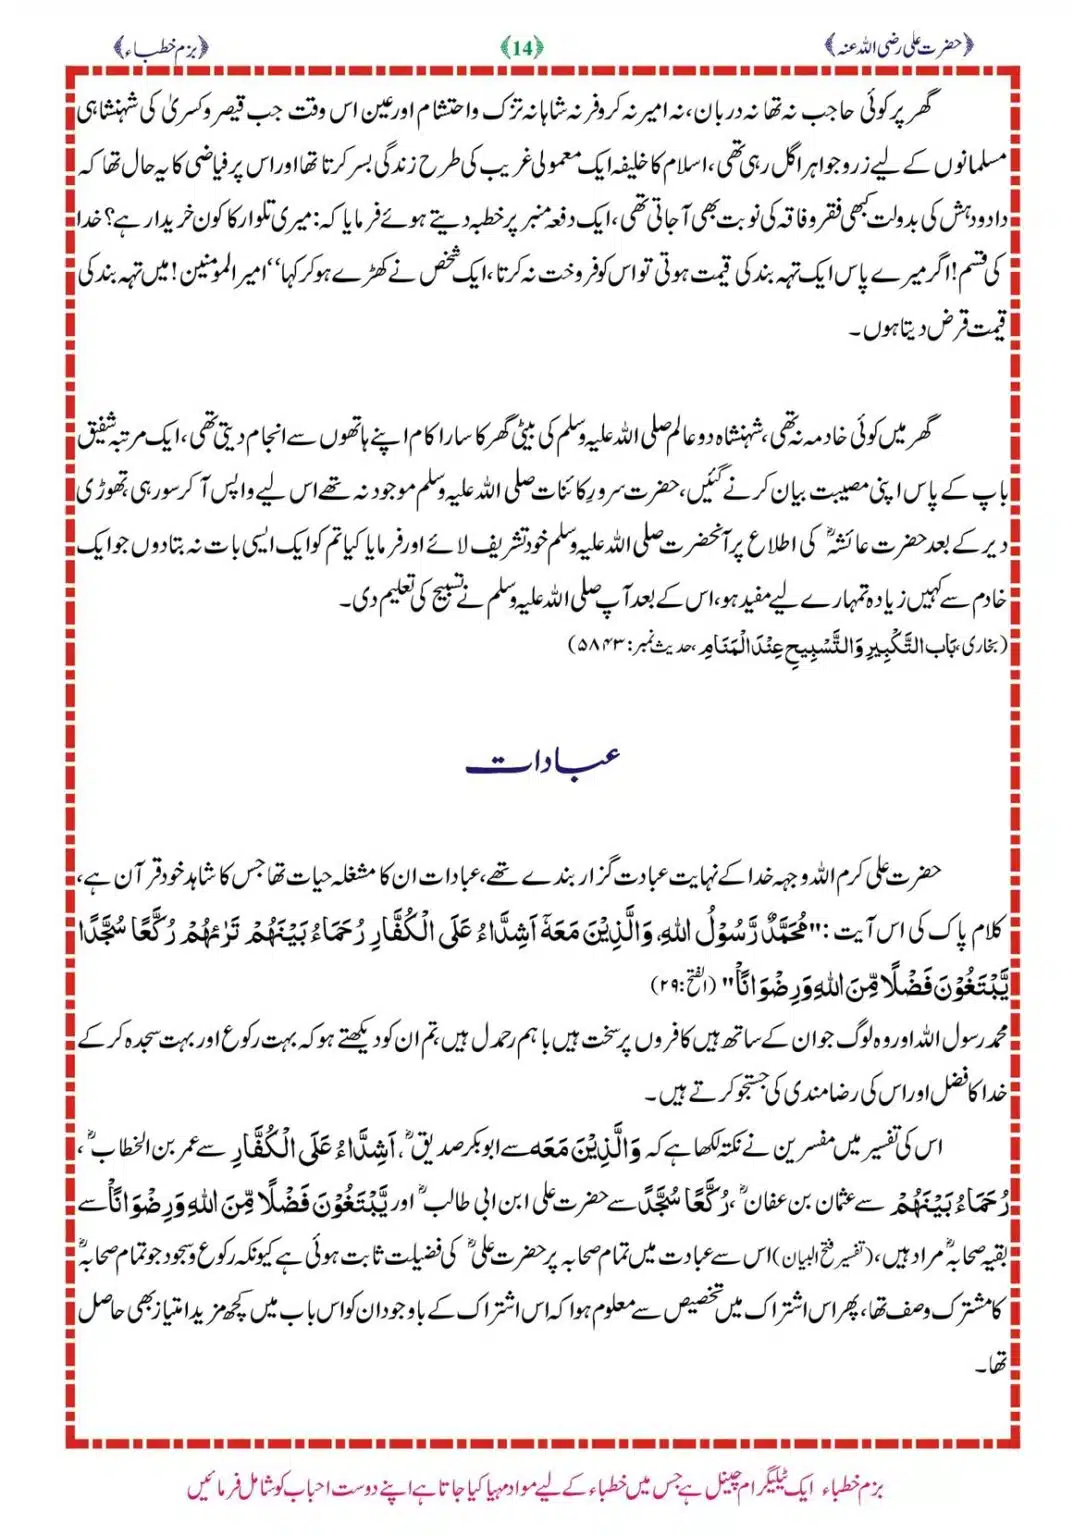 ﴿حضرت علی رضی اللہ عنہ﴾ ﴿14﴾ ﴿بزم خطباء﴾
گھر پر کوئی حاجب نہ تھا نہ دربان، نہ امیر نہ کروفر نہ شاہانہ تزک و احتشام اور عین اس وقت جب قیصر وکسریٰ کی شہنشاہی
مسلمانوں کے لیے زر و جواہر اگل رہی تھی، اسلام کا خلیفہ ایک معمولی غریب کی طرح زندگی بسر کرتا تھا اور اس پر فیاضی کا یہ حال تھا کہ
داد و دہش کی بدولت کبھی فقر و فاقہ کی نوبت بھی آجاتی تھی، ایک دفعہ منبر پر خطبہ دیتے ہوئے فرمایا کہ: میری تلوار کا کون خریدار ہے؟ خدا
کی قسم! اگر میرے پاس ایک تہہ بند کی قیمت ہوتی تو اس کو فروخت نہ کرتا، ایک شخص نے کھڑے ہو کر کہا“ امیر المومنین! میں تہہ بند کی
قیمت قرض دیتا ہوں۔
گھر میں کوئی خادمہ نہ تھی، شہنشاہ دو عالم صلی اللہ علیہ وسلم کی بیٹی گھر کا سارا کام اپنے ہاتھوں سے انجام دیتی تھی، ایک مرتبہ شفیق
باپ کے پاس اپنی مصیبت بیان کرنے گئیں، حضرت سرورِ کائنات صلی اللہ علیہ وسلم موجود نہ تھے اس لیے واپس آکر سو رہی، تھوڑی
دیر کے بعد حضرت عائشہؓ کی اطلاع پر آنحضرت صلی اللہ علیہ وسلم خود تشریف لائے اور فرمایا کیا تم کو ایک ایسی بات نہ بتادوں جو ایک
خادم سے کہیں زیادہ تمہارے لیے مفید ہو، اس کے بعد آپ صلی اللہ علیہ وسلم نے تسبیح کی تعلیم دی۔
(بخاری، بَاب التَّكْبِيرِ وَالتَّسْبِيحِ عِنْدَ الْمَنَامِ، حدیث نمبر: ۵۸۴۳)
عبادات
حضرت علی کرم اللہ وجہہ خدا کے نہایت عبادت گزار بندے تھے، عبادات ان کا مشغلہ حیات تھا جس کا شاہد خود قرآن ہے،
کلام پاک کی اس آیت: "مُحَمَّدٌ رَّسُوْلُ اللهِ، وَالَّذِيْنَ مَعَهٗ اَشِدَّاءُ عَلَى الْكُفَّارِ رُحَمَاءُ بَيْنَهُمْ تَرٰىهُمْ رُكَّعًا سُجَّدًا
يَّبْتَغُوْنَ فَضْلًا مِّنَ اللهِ وَرِضْوَانًا" (الفتح: ۲۹)
محمد رسول اللہ اور وہ لوگ جو ان کے ساتھ ہیں کافروں پر سخت ہیں باہم رحمدل ہیں، تم ان کو دیکھتے ہو کہ بہت رکوع اور بہت سجدہ کر کے
خدا کا فضل اور اس کی رضامندی کی جستجو کرتے ہیں۔
اس کی تفسیر میں مفسرین نے نکتہ لکھا ہے کہ وَالَّذِيْنَ مَعَه سے ابوبکر صدیقؓ، اَشِدَّاءُ عَلَى الْكُفَّارِ سے عمر بن الخطابؓ،
رُحَمَاءُ بَيْنَهُمْ سے عثمان بن عفانؓ، رُكَّعًا سُجَّدً سے حضرت علی ابن ابی طالبؓ اور يَّبْتَغُوْنَ فَضْلًا مِّنَ اللهِ وَرِضْوَانًا سے
بقیہ صحابہؓ مراد ہیں، (تفسیر فتح البیان) اس سے عبادت میں تمام صحابہ پر حضرت علیؓ کی فضیلت ثابت ہوئی ہے کیونکہ رکوع و سجود جو تمام صحابہؓ
کا مشترک وصف تھا، پھر اس اشتراک میں تخصیص سے معلوم ہوا کہ اس اشتراک کے باوجود ان کو اس باب میں کچھ مزید امتیاز بھی حاصل
تھا۔
بزم خطباء ایک ٹیلیگرام چینل ہے جس میں خطباء کے لیے مواد مہیا کیا جاتا ہے اپنے دوست احباب کو شامل فرمائیں